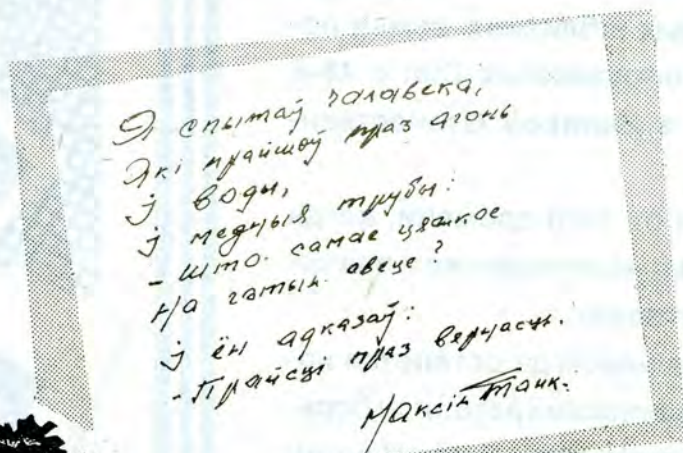 Я спытаў чалавека,
Які прайшоў праз агонь
І воды,
І медныя трубы:
- Што самае цяжкое
На гэтым свеце?
І ён адказаў:
- Прайсці праз вернасць.
Максім Танк.